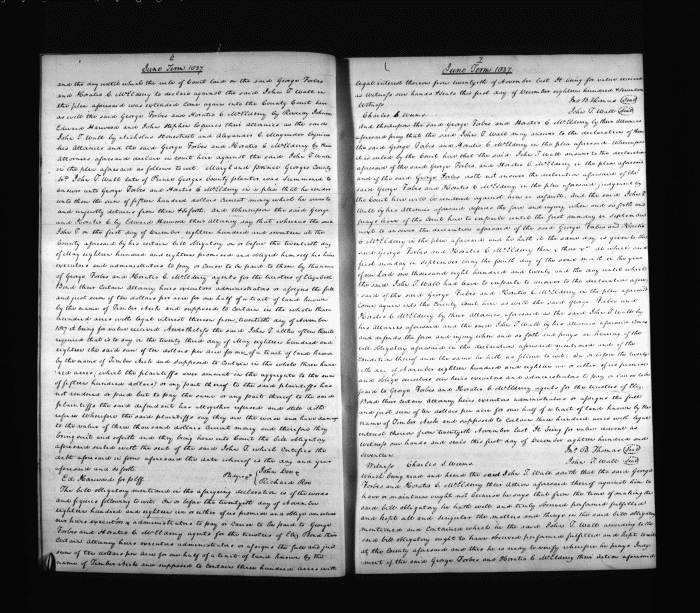 6
June Term 1827
and the day until which the rule of Court laid on the said George Forbes
and Horatio C McElderry to declare against the said John T. Wall in
the plea aforesaid was extended Come again into the County Court here
as well the said George Forbes and Horatio C. McElderry by Reverdy Johnson
Edward Harwood and John Stephen Esquires their attornies as the said
John T. Wall by and Alexander C. Magruder Esquires
his attornies and the said George Forbes and Horatio C McElderry by their
attornies aforesaid declare in court here against the said John T Wall
in the plea aforesaid as follows to wit. Maryland Prince Georges County
Sct. John T. Wall late of Prince Georges County was summoned to
answer unto George Forbes and Horatio C McElderry in a plea that he render
unto them the sum of fifteen hundred dollars current money which he owes to
and unjustly detains from them &c. And whereupon the said George
and Horatio C by Edward Harwood their attorney say that whereas the said
John T on the first day of December eighteen hundred and seventeen at the
County aforesaid by his certain bill obligatory on or before the twentieth day
of May eighteen hundred and eighteen promised and obliged himself his heirs
executors and administrators to pay or cause to be paid to them by the name
of George Forbes and Horatio C McElderry agents for the trustees of Elizabeth
Bond their certain attorney heirs executors administrators or assigns the full
and just sum of ten dollars per acre for one half of a tract of land known
by the name of Timber Neck and supposed to contain in the whole three
hundred acres with legal interest thereon from twentieth day of november
1817 it being for value received Nevertheless the said John T altho often thereto
required that is to say on the twenty third day of May eighteen hundred and
eighteen the said sum of ten dollars per acre for one half of a tract of land known
by the name of Timber Neck and supposed to contain in the whole three hund
red acres, which the plaintiffs aver amount in the aggregate to the sum
of fifteen hundred dollars, or any part thereof to the said plaintiffs has
not rendered or paid but to pay the same or any part thereof to the said
plaintiffs the said defendant has altogether refused and still doth
refuse Wherefore the said plaintiffs say they are the worse and have damage
to the value of three thousand dollars current money and therefore they
bring suit and so forth and they bring here into Court the bill obligatory
aforesaid sealed with the seal of the said John T. which certifies the
debt aforesaid in form aforesaid the date whereof is the day and year
aforesaid and so forth.
Ed Harwood for plff
Pledges &c John Doe &
Richard Roe
The bill obligatory mentioned in the aforegoing declaration is of the words
and figures following to wit. On or before the twentieth day of November
eighteen hundred and eighteen we or either of us promise and oblige ourselves
our heirs executors & administrators to pay or cause to be paid to George
Forbes and Horatio C McElderry agents for the trustees of Eliz. Bond their
certain attorney heirs executors administrators or assigns the full and just
sum of ten dollars per acre for one half of a tract of land known by the
name of Timber Neck and supposed to contain three hundred acres with
7
June Term 1827.
legal interest thereon from twentyeth of November last. It being for value received
as witness our hands and seals this first day of December eighteen hundred & seventeen
Witness
Jno B Thomas Seal
Charles S Unons.
John T. Wall Seal
And thereupon the said George Forbes and Horatio C. McElderry by their attornies
aforesaid pray that the said John T. Wall may answer to the declaration of them
the said George Forbes and Horatio C McElderry in the plea aforesaid. Whereupon
it is ruled by the Court here that the said John T Wall answer to the declaration
of the said George Forbes and Horatio C McElderry in the plea aforesaid
and if the said John T. Wall doth not answer the declaration aforesaid of the
said George Forbes and Horatio C McElderry in the plea aforesaid, judgment by
the Court here will be rendered against him in default. And the said John T.
Wall by his attornies aforesaid defends the force and injury when and so forth and
prays leave of the Court here to imparle until the first monday in September
next to answer the declaration aforesaid of the said George Forbes and Horatio
C. McElderry in the plea aforesaid and he hath it the same day is given to the
said George Forbes and Horatio C. McElderry then & there &c. At which said
first monday in September being the fourth day of the same month in the year
of our Lord one thousand eight hundred and twenty and the day until which
the said John T. Wall had leave to imparle to answer to the declaration afore
said of the said George Forbes and Horatio C McElderry in the plea aforesaid
Come again into the County Court here as well the said George Forbes and
Horatio C. McElderry by their attornies aforesaid as the said John T. Wall by
his attornies aforesaid and the said John T. Wall by his attornies aforesaid comes
and defends the force and injury when and so forth and prays a hearing of the
bill obligatory aforesaid in the declaration aforesaid mentioned and of the
condition thereof and the same he hath as follows to wit. On or before the twenty
eth of November eighteen hundred and eighteen we or either of us promise
and oblige ourselves our heirs executors and administrators to pay or cause to be
paid to George Forbes and Horatio C McElderry agents for the trustees of Eliz.
Bond their certain attorney heirs executors administrators or assigns the full
and just sum of ten dollars per acre for one half of a tract of land known by the
name of Timber Neck and supposed to contain three hundred acres with legal
interest thereon from twentyeth November last. It being for value received as
witness our hands and seals this first day of December eighteen hundred and
seventeen
Jno B Thomas Seal
Witness Charles S Unons.
John T. Wall Seal
Which being read and heard the said John T. Wall saith that the said George
Forbes and Horatio C. McElderry their action aforesaid thereof against him to
have or maintain ought not because he says that from the time of making the
said bill obligatory he hath well and truly observed performed fulfilled
and kept all and singular the matters and things in the said bill obligatory
mentioned and contained which he the said John T. Wall according to the
said bill obligatory ought to have observed performed fulfilled and kept to wit
at the County aforesaid and this he is ready to verify wherefore he prays Judg
ment if the said George Forbes and Horatio C. McElderry their action aforesaid